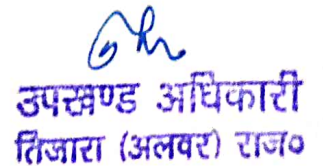 उपखण्ड अधिकारी
तिजारा (अलवर) राज०